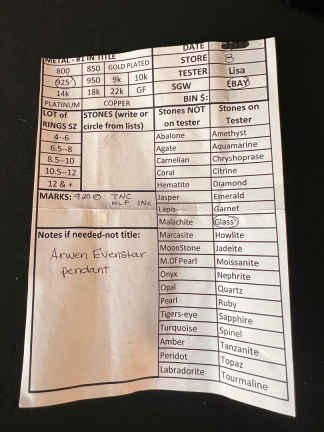 METAL - #1 IN TITLE
800 850 GOLD PLATED
925 950 9k 10k
14k 18k 22k GF
PLATINUM COPPER
DATE
STORE 8
TESTER Lisa
SGW EBAY
BIN $:
LOT of RINGS SZ
4--6
6.5--8
8.5--10
10.5--12
12 & +
STONES (write or circle from lists)
MARKS: 925 © INC NLP INC
Notes if needed-not title:
Arwen Evenstar
pendant
Stones NOT on tester
Abalone
Agate
Carnelian
Coral
Hematite
Jasper
Lapis
Malachite
Marcasite
MoonStone
M.Of Pearl
Onyx
Opal
Pearl
Tigers-eye
Turquoise
Amber
Peridot
Labradorite
Stones on Tester
Amethyst
Aquamarine
Chryshoprase
Citrine
Diamond
Emerald
Garnet
Glass
Howlite
Jadeite
Moissanite
Nephrite
Quartz
Ruby
Sapphire
Spinel
Tanzanite
Topaz
Tourmaline